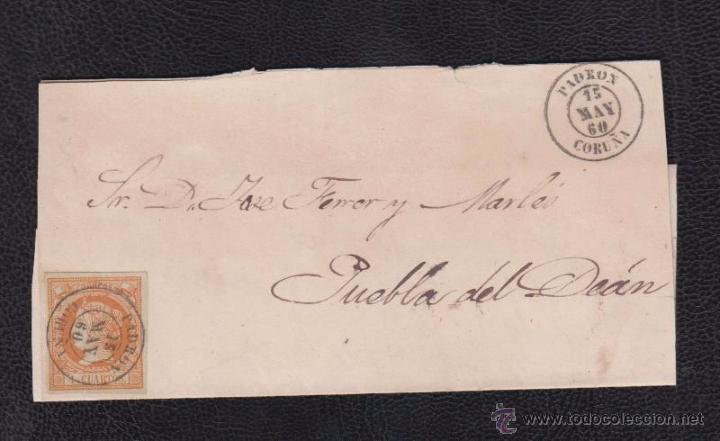 PADRON
15
MAY
60
CORUÑA
Sr. D. Jose Ferrer y Marlés
Puebla del Deán
PADRON
15
MAY
60
4 CUARTOS
www.todocoleccion.net